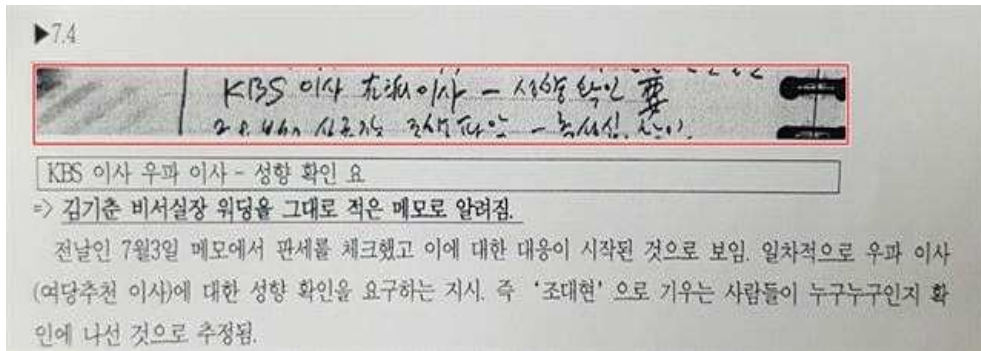 ▶7.4
KBS 이사 右派이사 - 성향 확인 要
KBS 이사 우파 이사 - 성향 확인 요
=> 김기춘 비서실장 워딩을 그대로 적은 메모로 알려짐.
전날인 7월3일 메모에서 판세를 체크했고 이에 대한 대응이 시작된 것으로 보임. 일차적으로 우파 이사
(여당추천 이사)에 대한 성향 확인을 요구하는 지시. 즉 ‘조대현’으로 기우는 사람들이 누구누구인지 확
인에 나선 것으로 추정됨.